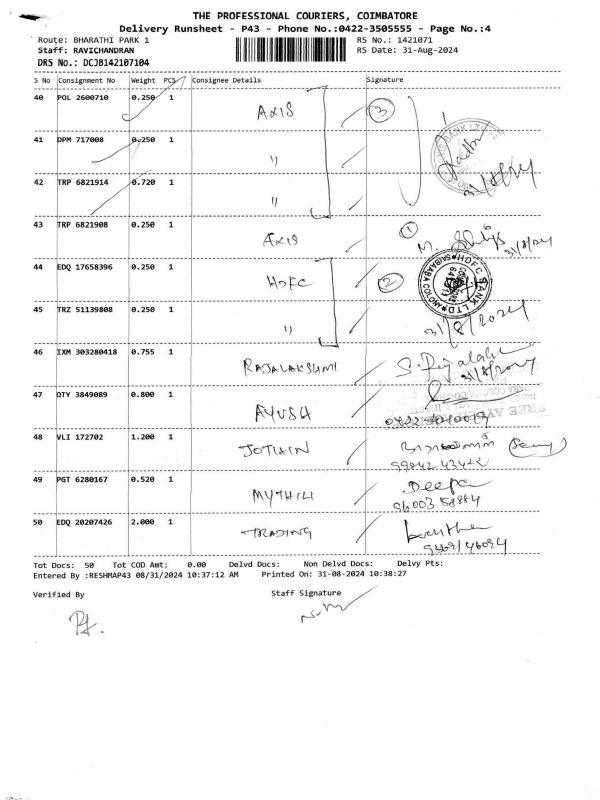 THE PROFESSIONAL COURIERS, COIMBATORE
Delivery Runsheet - P43 - Phone No.:0422-3505555 - Page No.:4
Route: BHARATHI PARK 1 RS No.: 1421071
Staff: RAVICHANDRAN RS Date: 31-Aug-2024
DRS No.: DCJB142107104
S No Consignment No Weight PCS Consignee Details Signature
40 POL 2600710 0.250 1 AXIS 3
41 DPM 717008 0.250 1 "
42 TRP 6821914 0.720 1 " 31/8/24
43 TRP 6821908 0.250 1 AXIS 1 31/8/24
44 EDQ 17658396 0.250 1 HDFC 2 HDFC BANK LTD
45 TRZ 51139808 0.250 1 " 31/8/2024
46 IXM 303280418 0.755 1 RAJALAKSHMI 31/8/2024
47 OTY 3849089 0.800 1 AYUSH
48 VLI 172702 1.200 1 JOTHIN
49 PGT 6280167 0.520 1 MYTHILI Deepa
96003 58884
50 EDQ 20207426 2.000 1 TRADING
Tot Docs: 50 Tot COD Amt: 0.00 Delvd Docs: Non Delvd Docs: Delvy Pts:
Entered By :RESHMAP43 08/31/2024 10:37:12 AM Printed On: 31-08-2024 10:38:27
Verified By Staff Signature